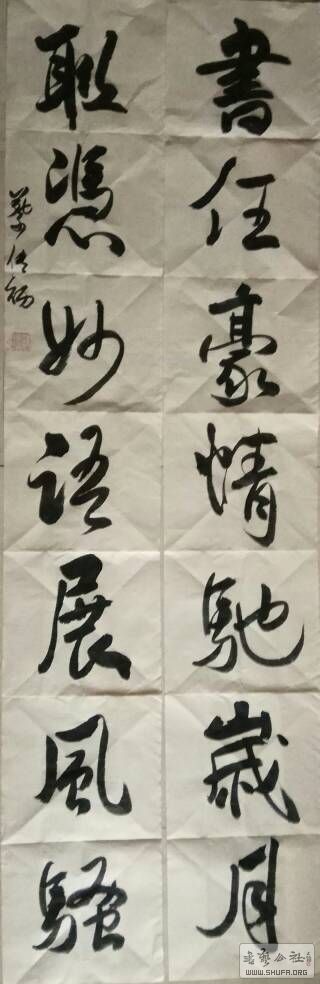 書任豪情馳歲月
聯憑妙語展風騷
書藝公社
WWW.SHUFA.ORG